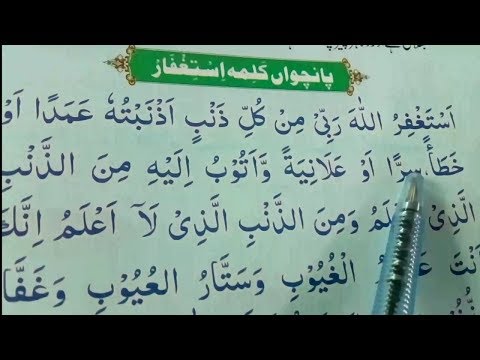 پانچواں کَلِمہ اِسْتِغْفَارْ
اَسْتَغْفِرُ اللّٰهَ رَبِّىْ مِنْ كُلِّ ذَنْۢبٍ اَذْنَبْتُهٗ عَمَدًا اَوْ
خَطَأً سِرًّا اَوْ عَلَانِيَةً وَّاَتُوْبُ اِلَيْهِ مِنَ الذَّنْۢبِ
الَّذِىْ وَمِنَ الذَّنْۢبِ الَّذِىْ لَآ اَعْلَمُ اِنَّكَ
اَنْتَ الْغُيُوْبِ وَسَتَّارُ الْعُيُوْبِ وَغَفَّا